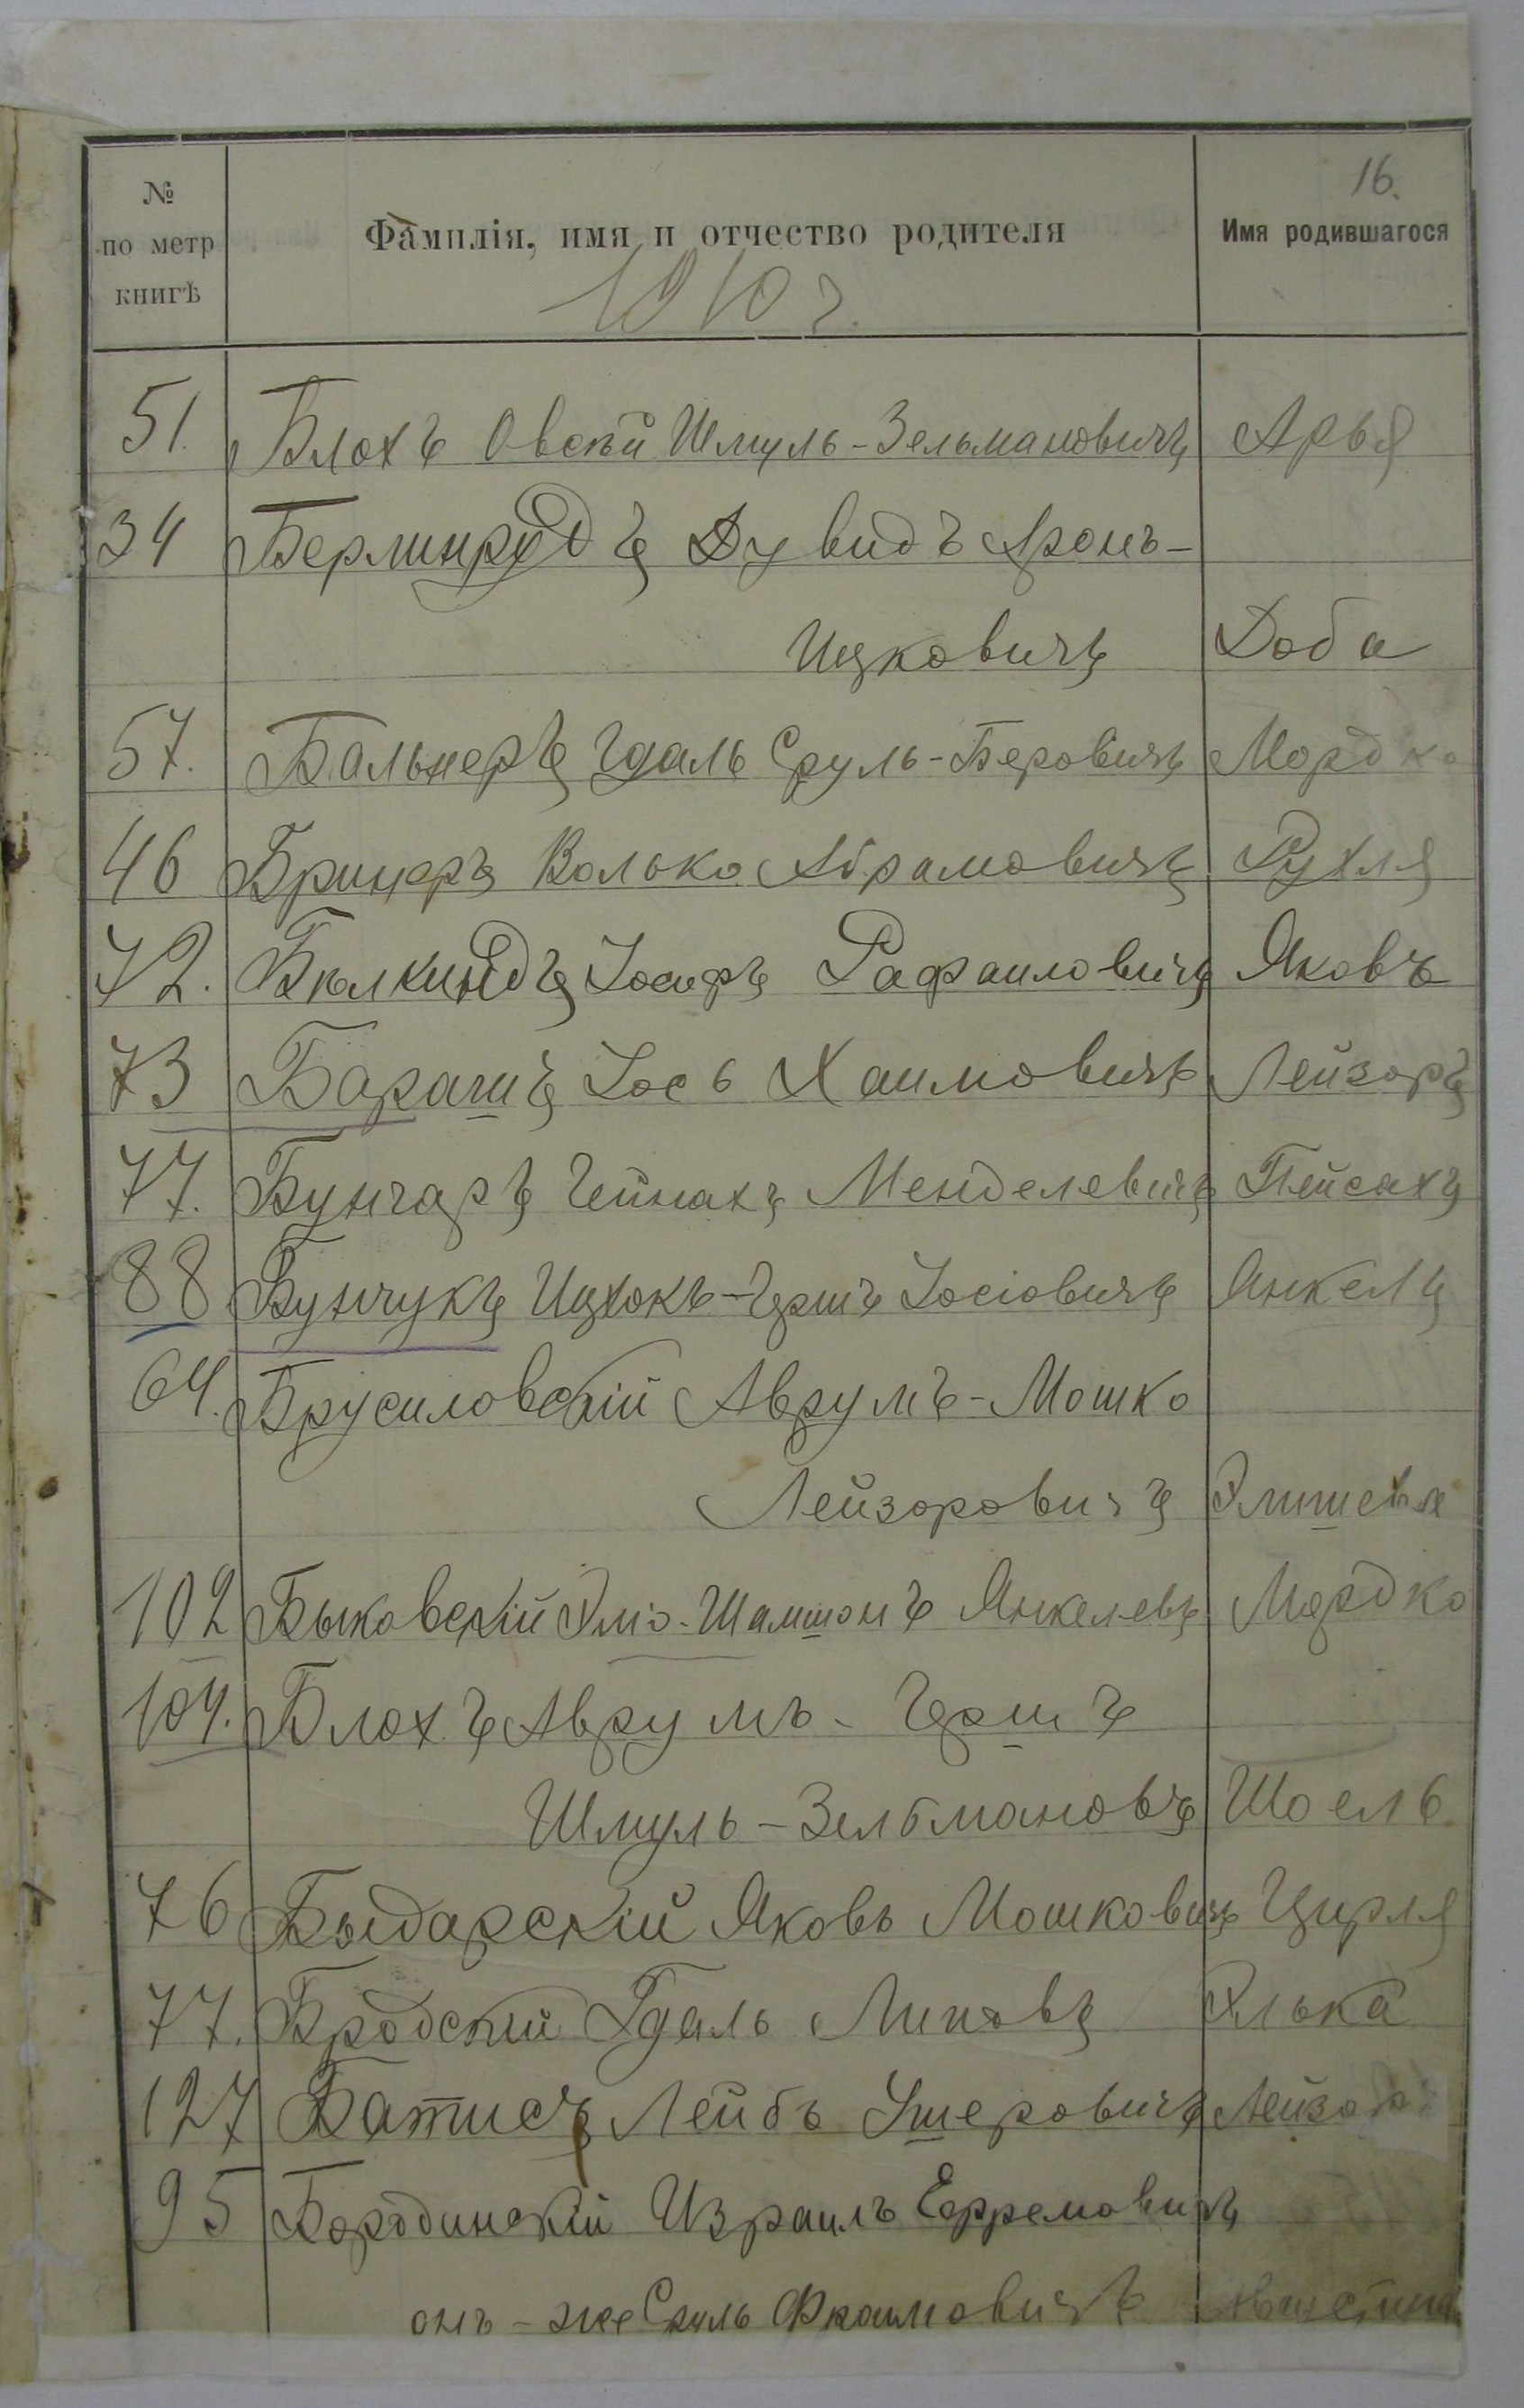 16.
№ по метр книгѣ Фамилія, имя и отчество родителя Имя родившагося
1910 г.
51. Блохъ Овсѣй Шмуль-Зельмановичъ Арья
34 Берлинрудъ Дувидъ Аронъ-
Ицковичъ Доба
57. Бальнеръ Гдаль Сруль-Беровичъ Мордко
46 Бринеръ Волько Абрамовичъ Рухля
72. Бѣлкиндъ Іосифъ Рафаиловичъ Яковъ
73 Барашъ Іось Хаимовичъ Лейзоръ
77. Бунчаръ Гейнахъ Менделевичъ Пейсахъ
88 Бунчукъ Ицхокъ-Гершъ Іосіовичъ Янкель
64. Брусиловскій Аврумъ-Мошко
Лейзоровичъ
102 Быковскій Эліо-Шамшонъ Янкелевъ Мордко
104. Блохъ Аврумъ-Гершъ
Шмуль-Зельмановъ Шоель
76 Быдарскій Яковъ Мошковичъ Цирля
77. Бродскій Гдаль Липовъ Элька
127 Батисъ Лейбъ Ушеровичъ Лейзоръ
95 Бородинскій Израиль Ефремовичъ
онъ-же Сруль Фраимовичъ